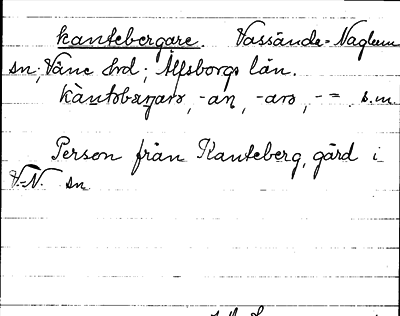 kantebergare. Vassända-Naglum
sn; Väne hrd; Älfsborgs län.
kàntobærjarə, -an, -arə, -=, s.m.
Person från Kanteberg, gård i
V.-N. sn